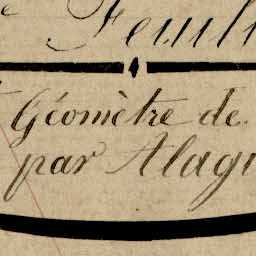 Feuill
Géomètre de
par Alagi